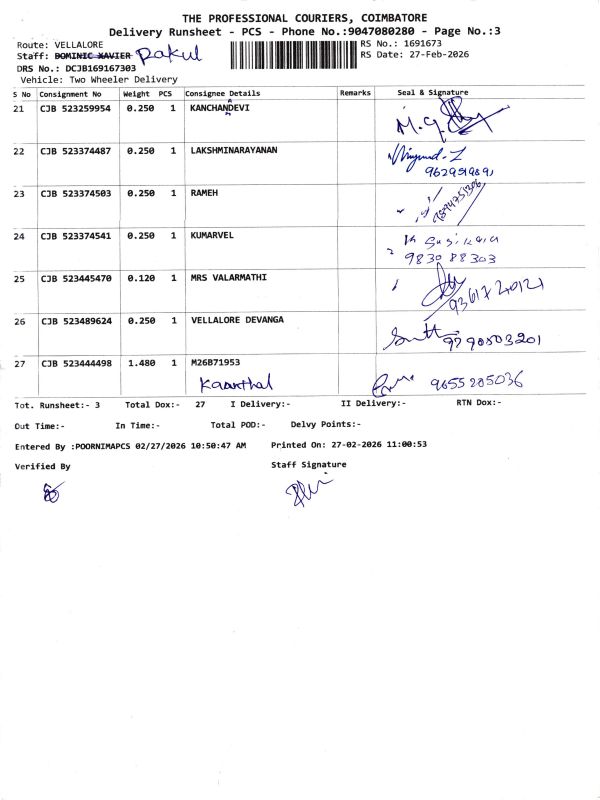 THE PROFESSIONAL COURIERS, COIMBATORE
Delivery Runsheet - PCS - Phone No.:9047080280 - Page No.:3
Route: VELLALORE
RS No.: 1691673
Staff: DOMINIC XAVIER Rakul
RS Date: 27-Feb-2026
DRS No.: DCJB169167303
Vehicle: Two Wheeler Delivery
S No Consignment No Weight PCS Consignee Details Remarks Seal & Signature
21 CJB 523259954 0.250 1 KANCHANDEVI
22 CJB 523374487 0.250 1 LAKSHMINARAYANAN
23 CJB 523374503 0.250 1 RAMEH
24 CJB 523374541 0.250 1 KUMARVEL
9830 88303
25 CJB 523445470 0.120 1 MRS VALARMATHI
26 CJB 523489624 0.250 1 VELLALORE DEVANGA
27 CJB 523444498 1.480 1 M26B71953
9655285036
Tot. Runsheet:- 3 Total Dox:- 27 I Delivery:- II Delivery:- RTN Dox:-
Out Time:- In Time:- Total POD:- Delvy Points:-
Entered By :POORNIMAPCS 02/27/2026 10:50:47 AM Printed On: 27-02-2026 11:00:53
Verified By Staff Signature